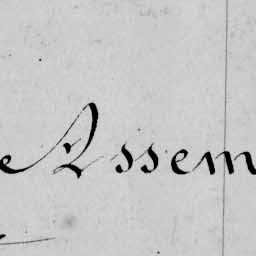 e Assem